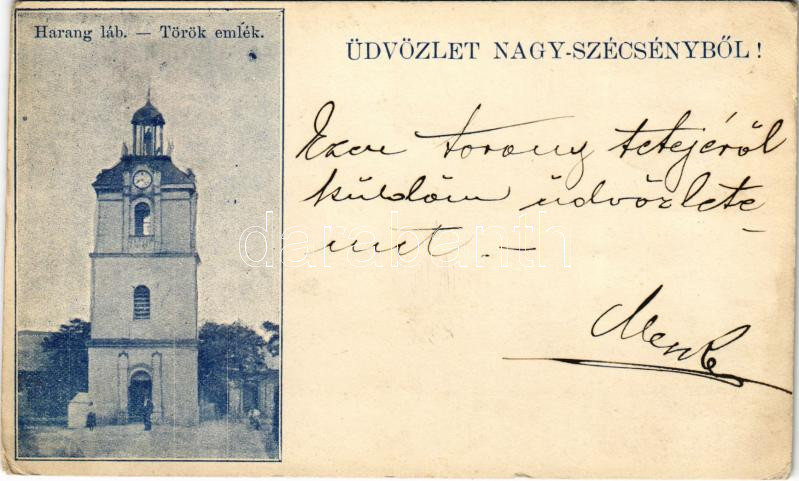 Harang láb. — Török emlék.
ÜDVÖZLET NAGY-SZÉCSÉNYBŐL!
Ezen torony tetejéről
küldöm üdvözlete-
met. —
darabanth